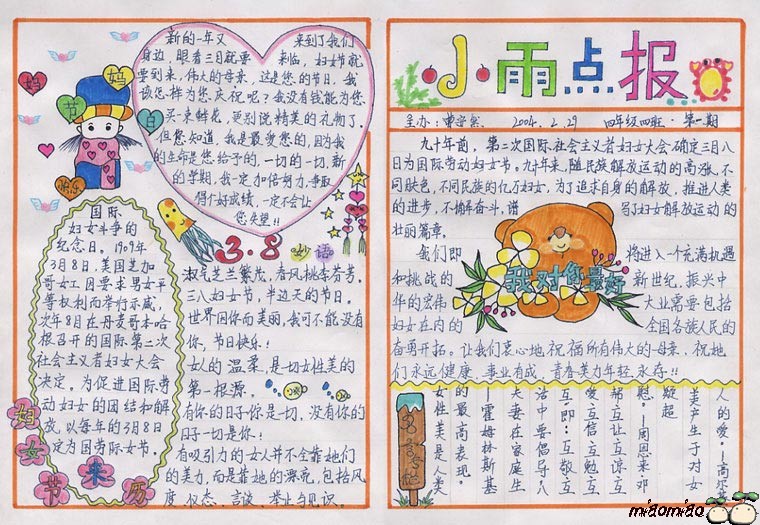 新的一年又 来到了我们
身边，眼看三月就要 来临，妇女节就
要到来，伟大的母亲，这是您的节日，我
该怎样为您庆祝呢？我没有钱能为您
买一束鲜花，更别说精美的礼物了。
但您知道，我是最爱您的，因为我
的生命是您给予的，一切的一切，新
的学期，我一定加倍努力，争取
得个好成绩，一定不会让
您失望！！
妈
妈
节
日
快乐
国际
妇女斗争的
纪念日。1909年
3月8日，美国芝加
哥女工因要求男女平
等权利而举行示威，
次年8月在丹麦哥本哈
根召开的国际第二次
社会主义者妇女大会
决定。为促进国际劳
动妇女的团结和解
放，以每年的3月8日
定为国劳际女节。
妇女节来历
3.8妙语
淑气芝兰繁茂，春风桃李芳芳。
三八妇女节，半边天的节日，
世界因你而美丽，我可不能没有
你，节日快乐！
女人的温柔，是一切女性美的
第一根源。
有你的日子你是一切，没有你的
日子一切是你！
有吸引力的女人并不全靠她们
的美力，而是靠她的漂亮，包括风
度、仪态、言谈、举止与见识。
小雨点报
主办： 2004.2.29 四年级四班 第一期
九十年前，第二次国际社会主义者妇女大会确定三月八
日为国际劳动妇女节。九十年来，随民族解放运动的高涨，不
同肤色，不同民族的亿万妇女，为了追求自身的解放，推进人类
的进步，不懈奋斗，谱 写了妇女解放运动的
壮丽篇章。
我们即 将进入一个充满机遇
和挑战的 新世纪，振兴中
华的宏伟 大业需要包括
妇女在内的 全国各族人民的
奋勇开拓。让我们衷心地祝福所有伟大的母亲，祝她
们永远健康、事业有成、青春美力年轻永存！！
我对你最好
人的爱。—高尔基
美产生于对女
慰。—周恩来邓
颖超
帮、互让、互谅、互
爱、互信、互勉、互
互即：互敬、互
活中要倡导：八
夫妻在家庭生
—霍姆林斯基
的最高表现。
女性美是人类
名言
miaomiao